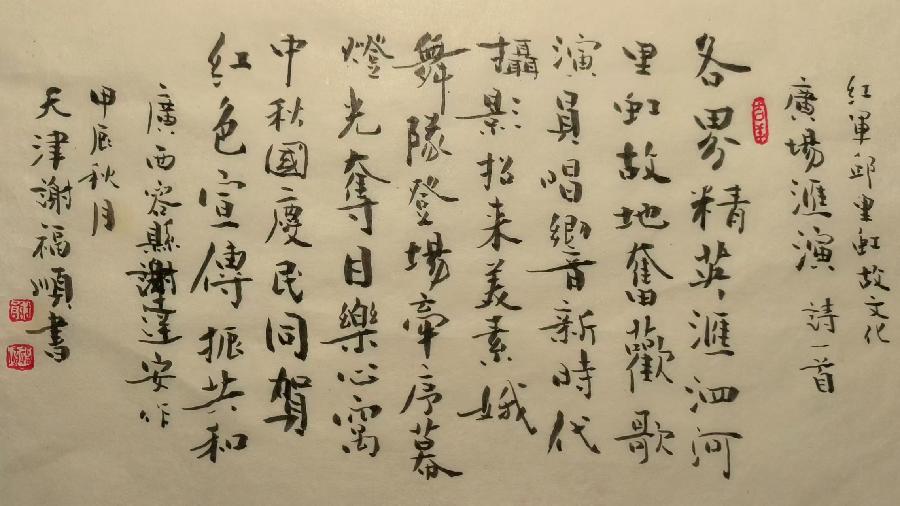 紅軍邱里虹故文化
廣場滙演 詩一首
各界精英滙泗河
里虹故地奮歡歌
演員唱鄉音新時代
攝影招来美素娥
舞隊登場牽序幕
燈光奪目樂心窩
中秋國慶民同賀
紅色宣傳振共和
廣西容縣謝達安作
甲辰秋月
天津謝福順書